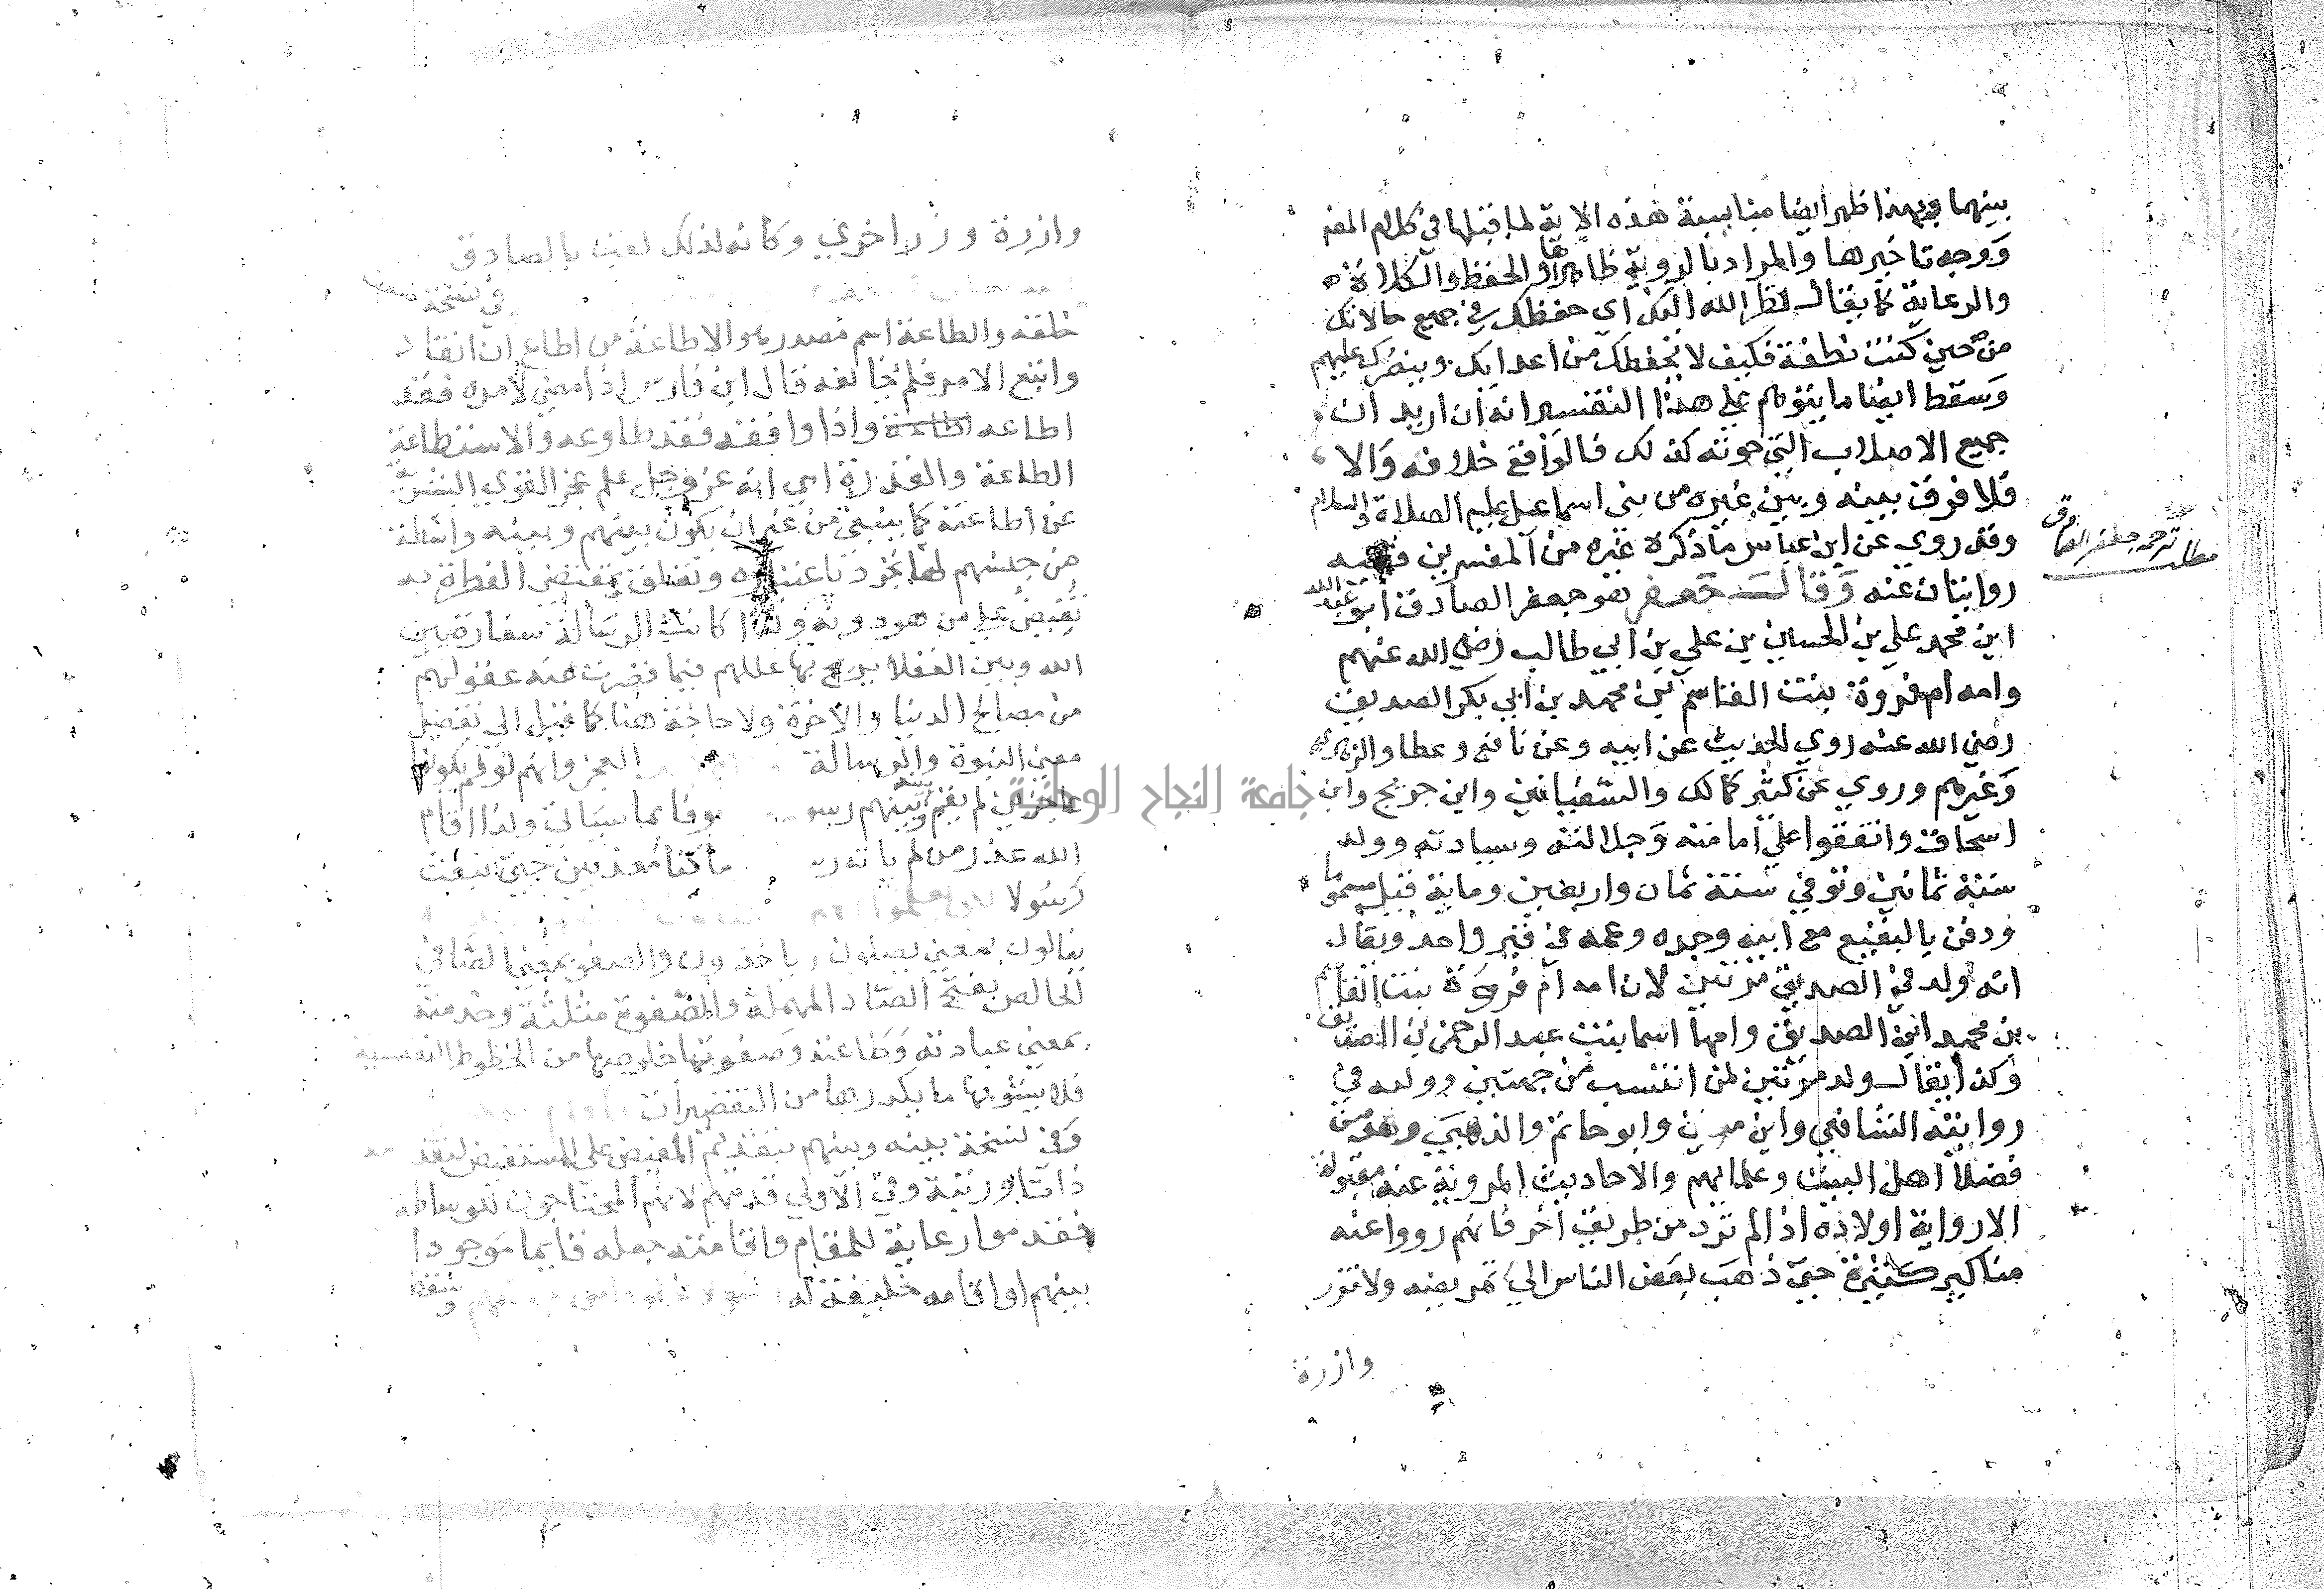 بينهما وبهذا ظهر ايضا مناسبة هذه الاية لما قبلها في كلام المص
ووجه تاخيرها والمراد بالروية ظاهرها والحفظ والكلاة
والرعاية كما يقال نظر الله اليك اي حفظك في جميع حالاتك
من حين كنت نطفة فكيف لا نحفظك من اعدايك وينصرك عليهم
وسقط ايضا ما يتوهم علي هذا التفسير انه ان اريد ان
جميع الاصلاب التي حوته كذلك فالواقع خلافه والا
فلا فرق بينه وبين غيره من بني اسماعيل عليه الصلاة والسلام
وقد روي عن ابن عباس ما ذكره غيره من المفسرين ففيه
روايتان عنه وقال جعفر هو جعفر الصادق ابو عبد الله
ابن محمد علي بن الحسين بن علي بن ابي طالب رضي الله عنهم
وامه ام فروة بنت القاسم بن محمد بن ابي بكر الصديق
رضي الله عنه روي الحديث عن ابيه وعن نافع وعطا والزهري
وغيرهم وروي عن كثير كمالك والسفيانين وابن جريج وابن
اسحاق واتفقوا علي امامته وجلالته وسيادته وولد
سنة ثمانين وتوفي سنة ثمان واربعين وماية قيل مسموما
ودفن بالبقيع مع ابيه وجده وعمه في قبر واحد ويقال
انه ولد في الصديق مرتين لان امه ام فروة بنت القاسم
بن محمد ابن الصديق وامها اسما بنت عبد الرحمن بن الصديق
وكذا يقال ولد مرتين لمن انتسب من جهتين وولده في
روايته الشافعي وابن معين وابو حاتم والذهبي وهو من
فضلا اهل البيت وعلمايهم والاحاديث المروية عنه مقبولة
الا رواية اولاده اذا لم ترد من طريق اخر فانهم رووا عنه
مناكير كثيرة حتي ذهب بعض الناس الي تمريضه ولا تزر
وازرة
مطلب ترجمة جعفر الصادق
وازرة وزر اخري وكانه لذلك لقب بالصادق
في نسخة
خلقه والطاعة اسم مصدر هو الاطاعة من اطاع ان انقاد
واتبع الامر فلم يخالفه قال ابن فارس اذا مضي لامره فقد
اطاعه واذا وافقه فقد طاوعه والاستطاعة
الطاعة والقدرة اي انه عز وجل علم عجز القوي البشرية
عن اطاعته كما ينبغي من غير ان يكون بينهم وبينه واسطة
من جنسهم لها تجرد باعتباره وتعلق بمقتضي الفطرة به
تفيض علي من هو دونه ولذا كانت الرسالة سفارة بين
الله وبين العقلا يزيح بها عللهم فيما قصرت عنه عقولهم
من مصالح الدنيا والاخرة ولا حاجة هنا كما قيل الي تفضيل
معني النبوة والرسالة العجز وانهم لو لم يكونوا
عاجزين لم يقم بينه وبينهم
الله عذر من لم ياته ما كنا معذبين حتي نبعث
رسولا
ينالون بمعني يصلون وياخذون والصفو بمعني الصافي
الخالص بفتح الصاد المهملة والصفوة مثلثة وخدمته
بمعني عبادته وطاعته وصفوتها خلوصها من الحظوظ النفسية
فلا يشوبها ما يكدرها من التقصيرات
وفي نسخة بينه وبينهم بتقديم المفيض علي المستفيض لتقدمه
ذاتا ورتبة وفي الاولي قدمهم لانهم المحتاجون للوساطة
فقدموا رعاية للمقام واقامته جعله قايما موجودا
بينهم او اقامه خليفة له